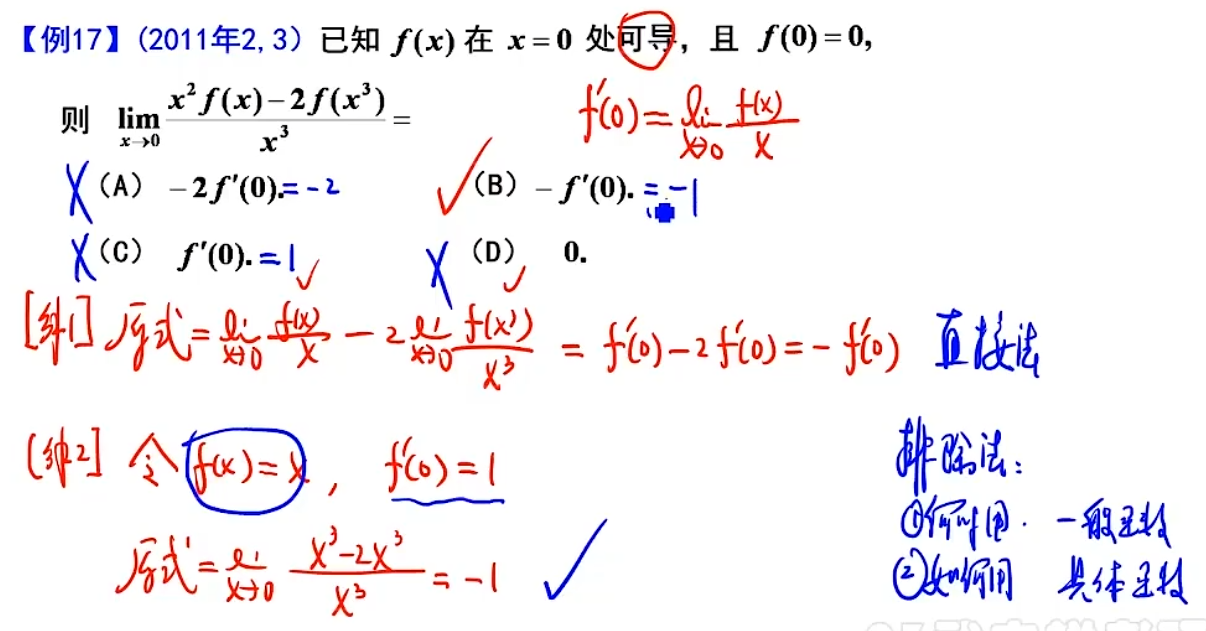 【例17】(2011年2,3) 已知 f(x) 在 x=0 处可导，且 f(0)=0,
则 lim x→0 (x²f(x)−2f(x³))/x³ =
f'(0)= lim x→0 f(x)/x
(A) −2f'(0). =-2 (B) −f'(0). =-1
(C) f'(0). =1 (D) 0.
[解1] 原式= lim x→0 f(x)/x − 2 lim x→0 f(x³)/x³ = f'(0)−2f'(0)=−f'(0) 直接法
[解2] 令 f(x)=x, f'(0)=1
排除法:
①何时用. 一般函数
原式= lim x→0 (x³−2x³)/x³ = −1
②如何用 具体函数